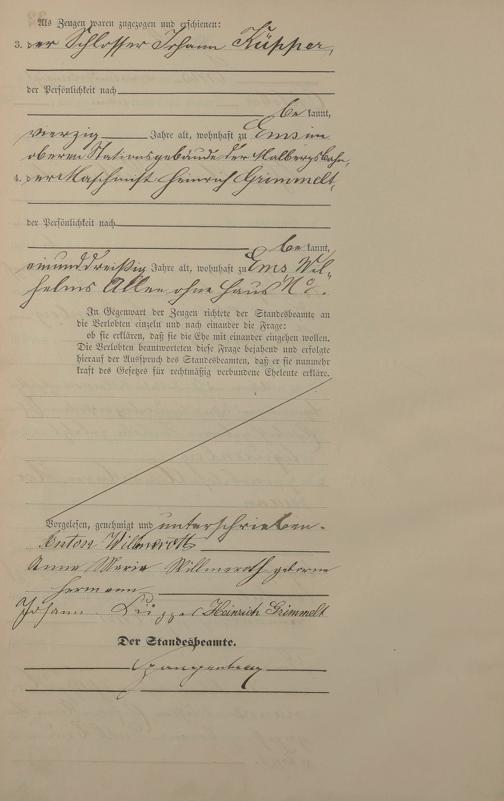 Als Zeugen waren zugezogen und erschienen:
3. der Schlosser Johann Küpper,
der Persönlichkeit nach
bekannt,
vierzig Jahre alt, wohnhaft zu Ems im
oberen Stationsgebäude der Malbergsbahn,
4. der Maschinist Heinrich Grimmelt,
der Persönlichkeit nach
bekannt,
einunddreißig Jahre alt, wohnhaft zu Ems, Wil-
helms Allee ohne Haus No.
In Gegenwart der Zeugen richtete der Standesbeamte an
die Verlobten einzeln und nach einander die Frage:
ob sie erklären, daß sie die Ehe mit einander eingehen wollen.
Die Verlobten beantworteten diese Frage bejahend und erfolgte
hierauf der Ausspruch des Standesbeamten, daß er sie nunmehr
kraft des Gesetzes für rechtmäßig verbundene Eheleute erkläre.
Vorgelesen, genehmigt und unterschrieben.
Anton Willmeroth
Anna Maria Willmeroth geborne
Hermann
Johann Küpper Heinrich Grimmelt
Der Standesbeamte.
Spangenberg